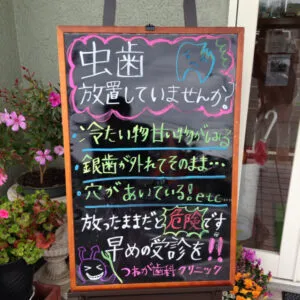 虫歯
放置していませんか?
・冷たい物甘い物がしみる
・銀歯が外れてそのまま…
・穴があいている!etc…
放ったままだと危険です
早めの受診を!!
つねが歯科クリニック